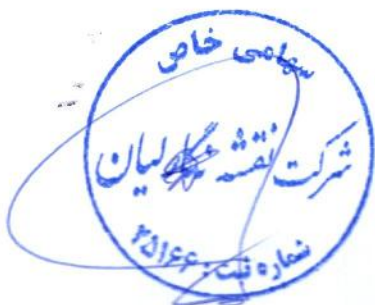 سهامی خاص
شرکت نقشه نگار لیان
شماره ثبت: ۲۵۱۶۶